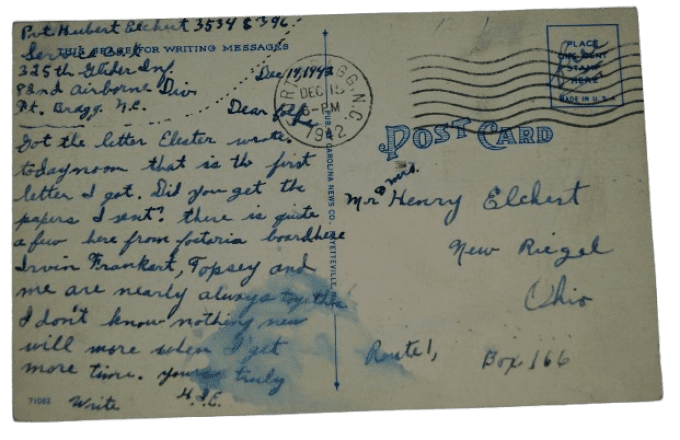 Pvt Hubert Elchert 35348396.
Service Co.
THIS SPACE FOR WRITING MESSAGES
325th Glider Inf.
82nd Airborne Div
Ft. Bragg. N.C.
Dec 14, 1942
Dear folks
Got the letter Elester wrote.
today noon that is the first
letter I got. Did you get the
papers I sent? there is quite
a few here from fostoria boardhere
Irvin Frankart, Topsey and
me are nearly always together
I don't know nothing new
will more when I get
more time. yours truly
H.J.E.
Write
71082
CAROLINA NEWS CO., FAYETTEVILLE,
FORT BRAGG, N.C.
DEC 15
6-PM
1942
PLACE
ONE CENT
STAMP
HERE
MADE IN U.S.A.
POST CARD
Mr & Mrs. Henry Elchert
New Riegel
Ohio
Route 1, Box 166